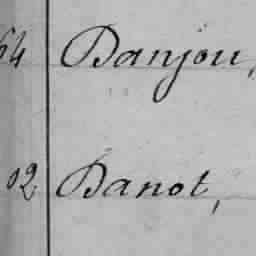 64 Danjou,
02 Danot,